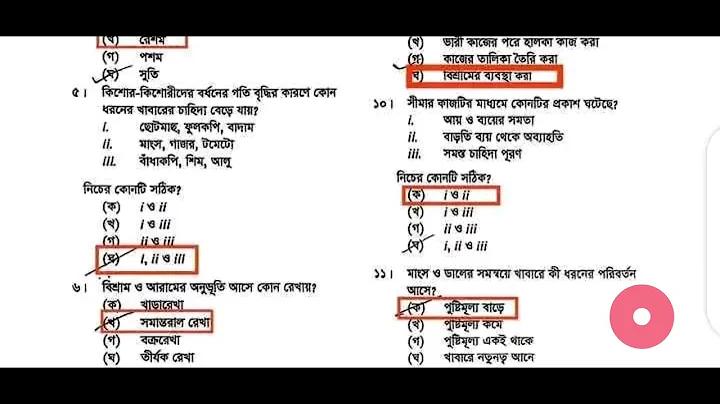 (খ) রেশম
(গ) পশম
(ঘ) সুতি
৫। কিশোর-কিশোরীদের বর্ধনের গতি বৃদ্ধির কারণে কোন
ধরনের খাবারের চাহিদা বেড়ে যায়?
i. ছোটমাছ, ফুলকপি, বাদাম
ii. মাংস, গাজর, টমেটো
iii. বাঁধাকপি, শিম, আলু
নিচের কোনটি সঠিক?
(ক) i ও ii
(খ) i ও iii
(গ) ii ও iii
(ঘ) i, ii ও iii
৬। বিশ্রাম ও আরামের অনুভূতি আসে কোন রেখায়?
(ক) খাড়ারেখা
(খ) সমান্তরাল রেখা
(গ) বক্ররেখা
(ঘ) তীর্যক রেখা
(খ) ভারী কাজের পরে হালকা কাজ করা
(গ) কাজের তালিকা তৈরি করা
(ঘ) বিশ্রামের ব্যবস্থা করা
১০। সীমার কাজটির মাধ্যমে কোনটির প্রকাশ ঘটেছে?
i. আয় ও ব্যয়ের সমতা
ii. বাড়তি ব্যয় থেকে অব্যাহতি
iii. সমস্ত চাহিদা পূরণ
নিচের কোনটি সঠিক?
(ক) i ও ii
(খ) i ও iii
(গ) ii ও iii
(ঘ) i, ii ও iii
১১। মাংস ও ডালের সমন্বয়ে খাবারে কী ধরনের পরিবর্তন
আসে?
(ক) পুষ্টিমূল্য বাড়ে
(খ) পুষ্টিমূল্য কমে
(গ) পুষ্টিমূল্য একই থাকে
(ঘ) খাবারে নতুনত্ব আনে